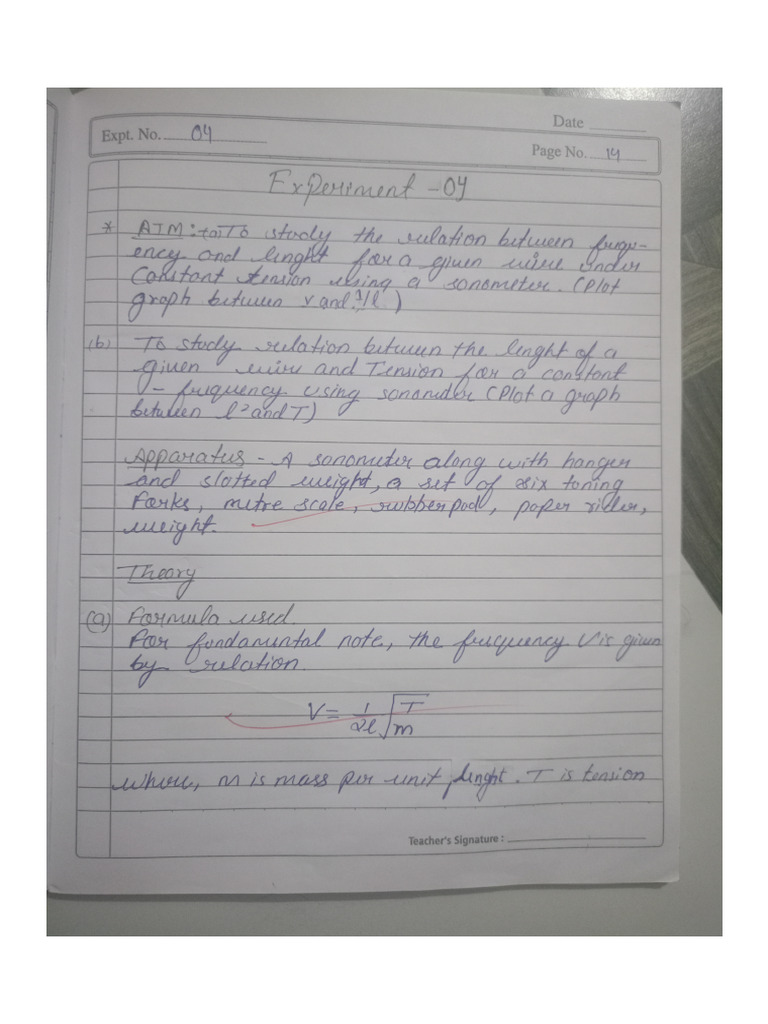 Date
Expt. No. 04
Page No. 14
Experiment - 04
* AIM : (a) To study the relation between frequ-
ency and lenght for a given wire under
Constant tension using a sonometer. (Plot
graph between v and 1/l )
(b) To study relation between the lenght of a
given wire and Tension for a constant
- frequency using sonometer (Plot a graph
between l² and T)
Apparatus - A sonometer along with hanger
and slotted weight, a set of six toning
Forks, metre scale, rubber pad, paper rider,
weight.
Theory
(a) Formula used.
For fondamental note, the frequency V is given
by relation.
V = 1/2l √T/m
where, m is mass per unit lenght. T is tension
Teacher's Signature :